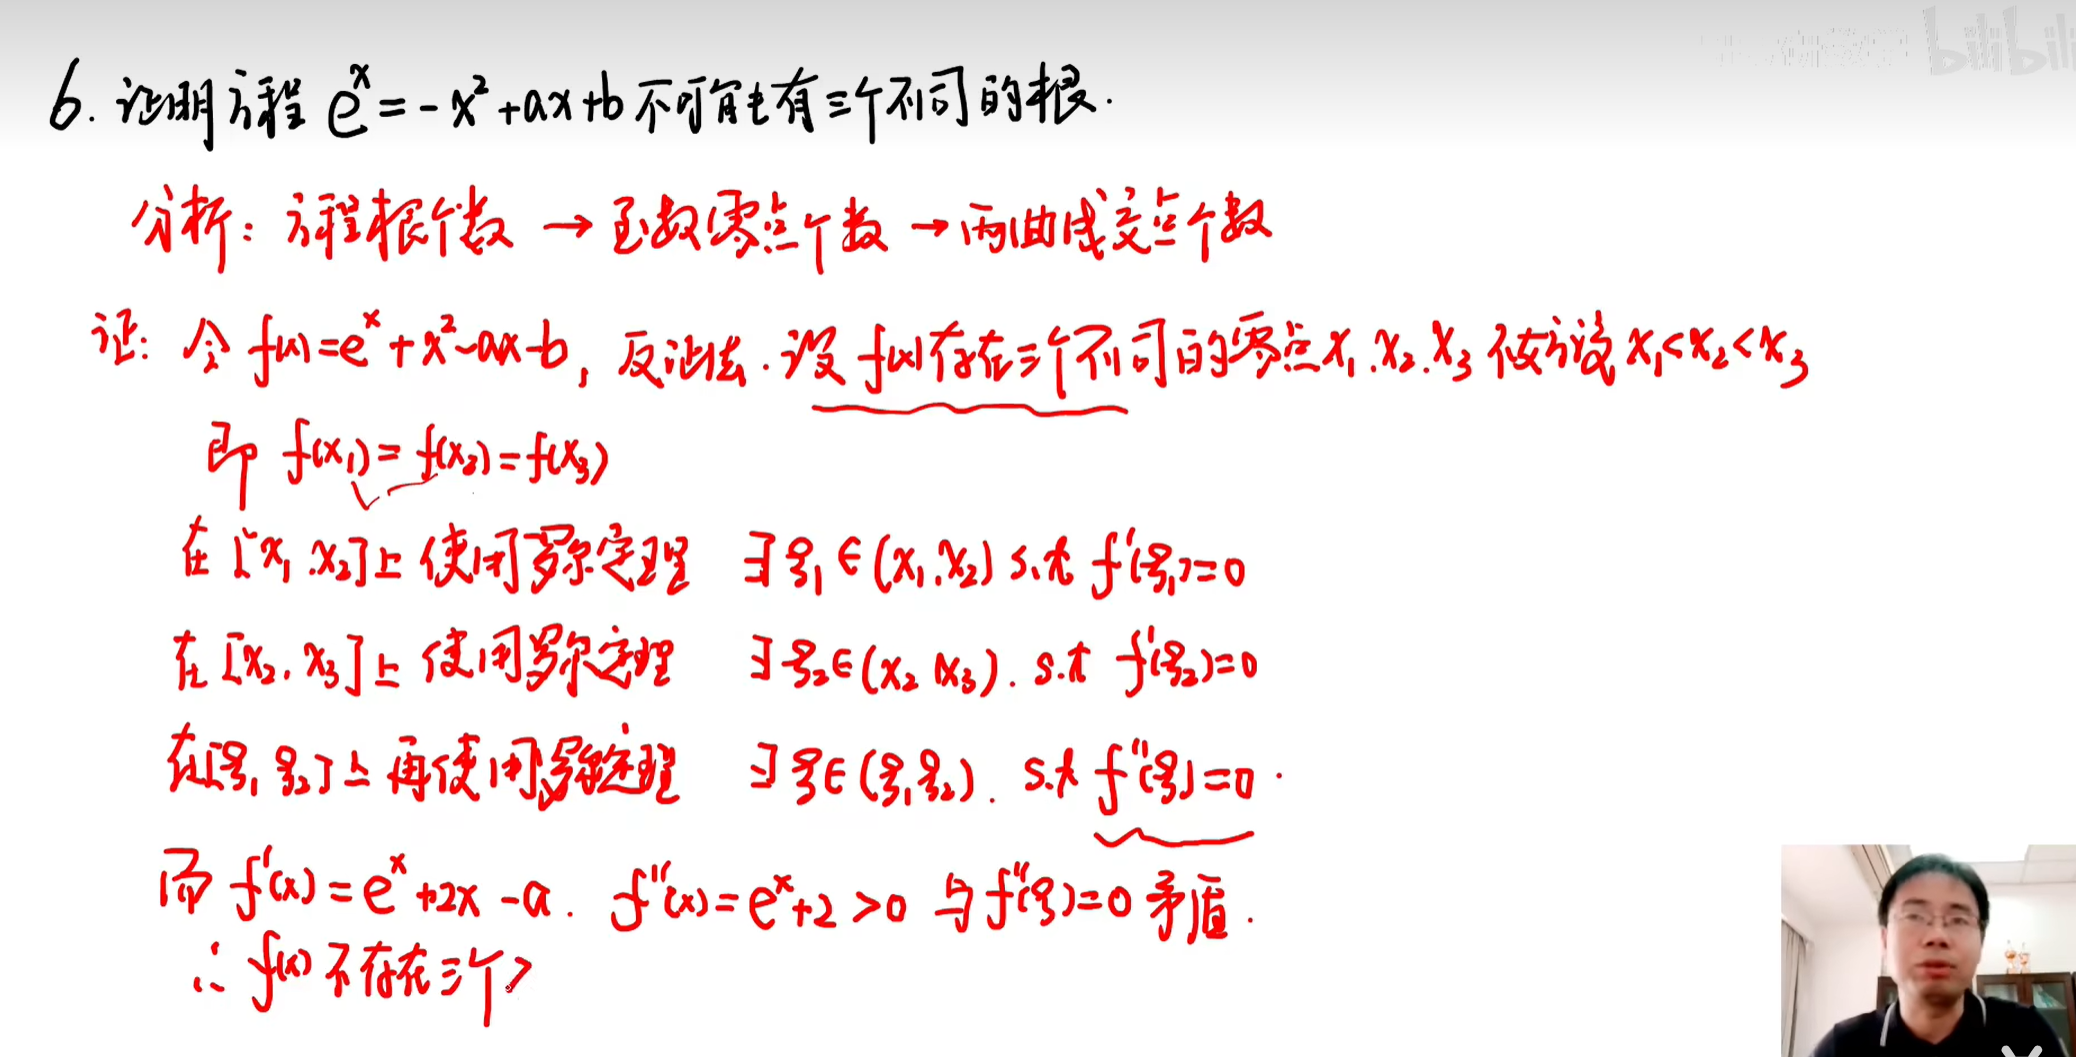 bilibili
6. 证明方程 e^x = -x² + ax + b 不可能有三个不同的根.
分析: 方程根个数 → 函数零点个数 → 两曲线交点个数
证: 令 f(x) = e^x + x² - ax - b, 反证法. 设 f(x) 存在三个不同的零点 x₁.x₂.x₃ 不妨设 x₁<x₂<x₃
即 f(x₁) = f(x₂) = f(x₃)
在 [x₁.x₂] 上使用罗尔定理 ∃ ξ₁ ∈ (x₁.x₂) s.t f'(ξ₁) = 0
在 [x₂.x₃] 上使用罗尔定理 ∃ ξ₂ ∈ (x₂ x₃). s.t f'(ξ₂) = 0
在 [ξ₁ ξ₂] 上再使用罗尔定理 ∃ ξ ∈ (ξ₁ ξ₂). s.t f''(ξ) = 0.
而 f'(x) = e^x + 2x - a. f''(x) = e^x + 2 > 0 与 f''(ξ) = 0 矛盾.
∴ f(x) 不存在三个